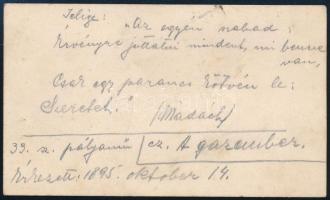 Jelige: „Az egyén szabad:
Érvényre juttatni mindent, mi benne
van,
Csak egy parancs kötvén le:
Szeretet."
(Madách)
33. sz. pályamű cz. A gazember.
Érkezett: 1895. október 14.